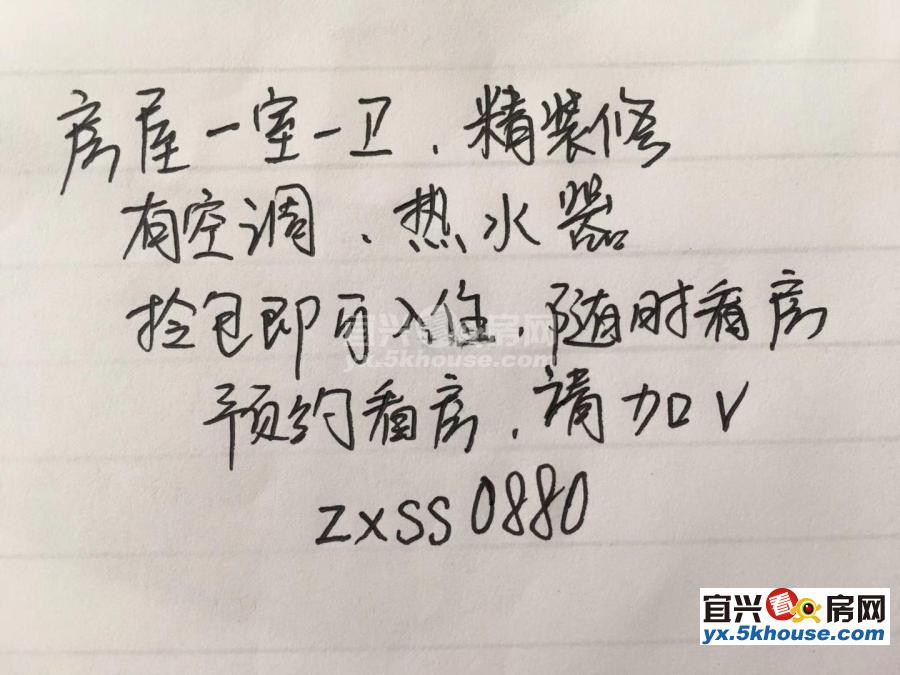 房屋一室一卫、精装修
有空调、热水器
拎包即可入住、随时看房
预约看房、请加V
zxss0880
宜兴看房网
yx.5khouse.com
宜兴看房网
yx.5khouse.com